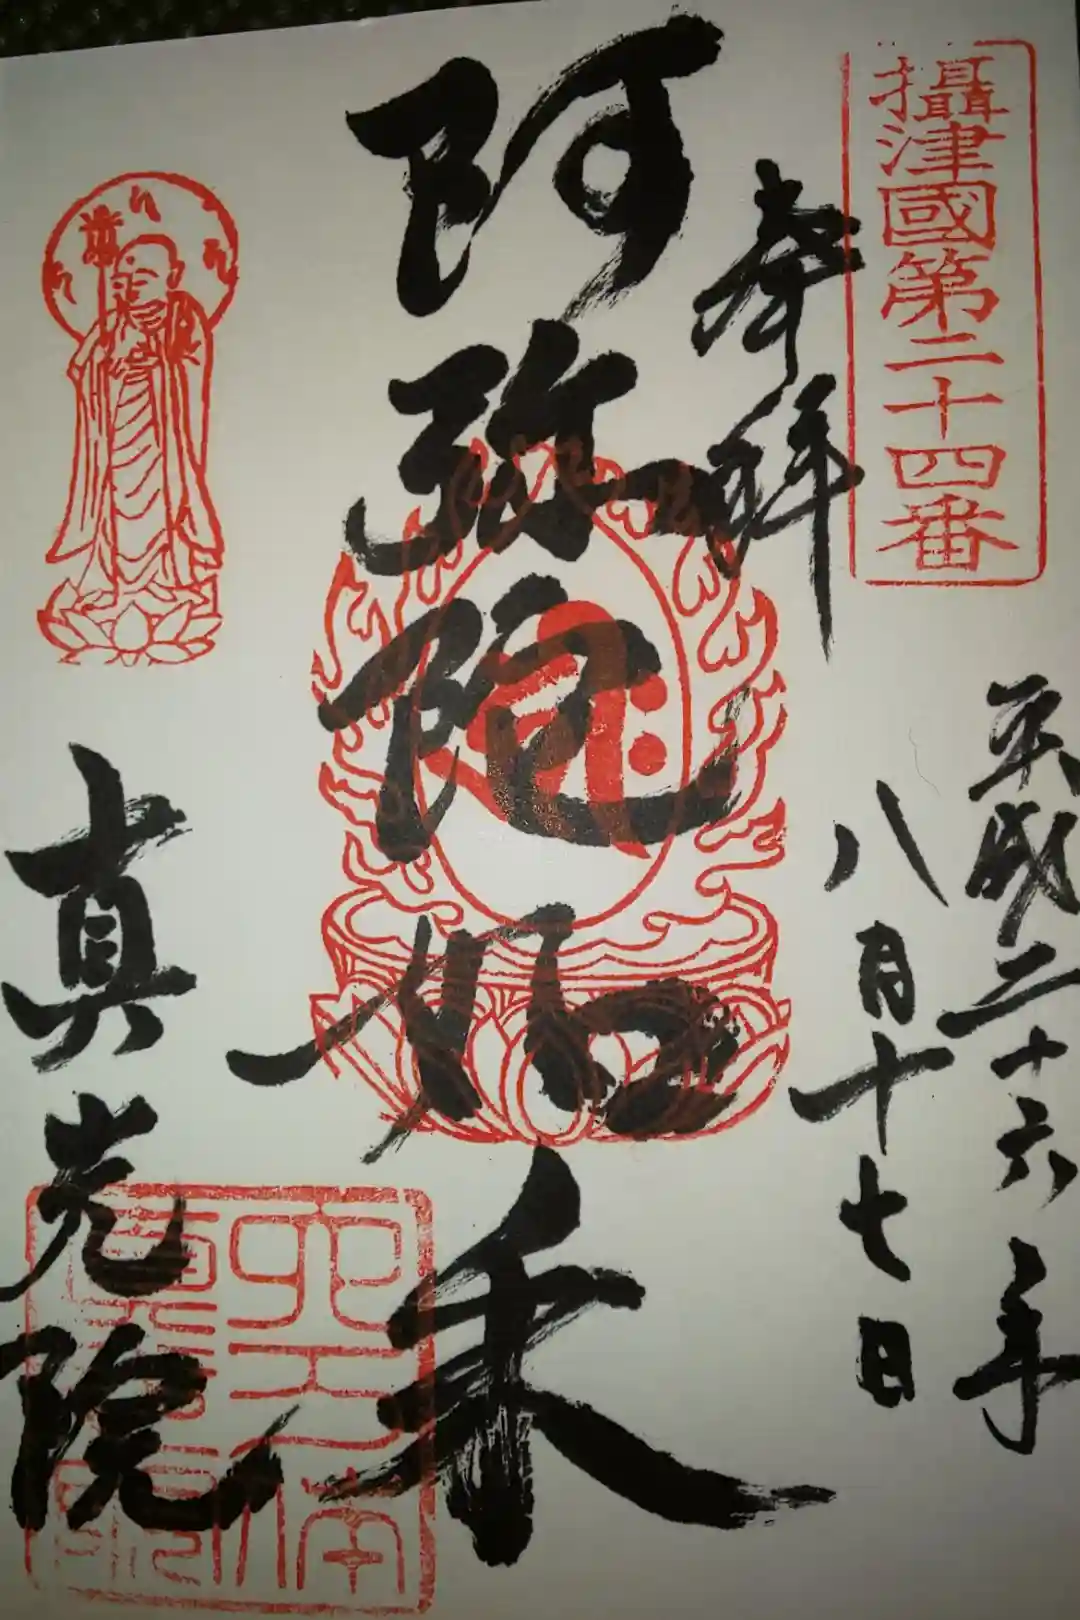 攝津國第二十四番
平成二十六年
八月十七日
奉拜
阿弥陀如来
真光院